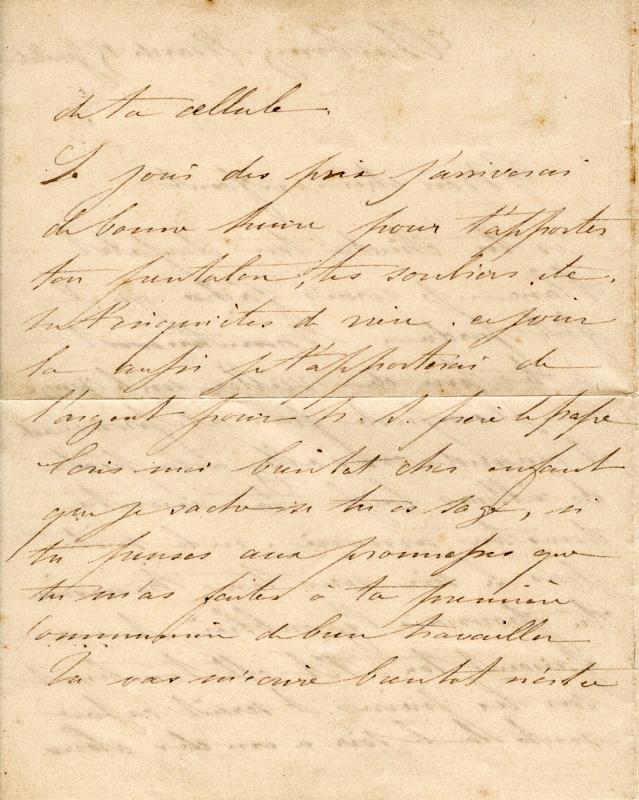 de ta cellule.
Le jour des prix j'arriverai
de bonne heure pour t'apporter
ton pantalon, tes souliers, etc.
ne t'inquietes de rien. ce jour
la aussi je t'apporterai de
l'argent pour N. S. Père le pape
Ecris moi bientot cher enfant
que je sache si tu es sage, si
tu penses aux promesses que
tu m'as faites à ta première
Communion de bien travailler
Tu vas m'ecrire bientot n'est ce